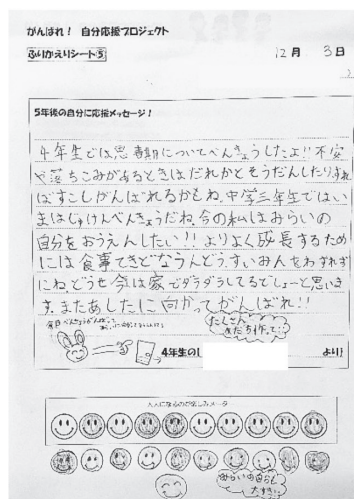 がんばれ！ 自分応援プロジェクト
ふりかえりシート⑤
12月 3日
5年後の自分に応援メッセージ！
4年生では思春期についてべんきょうしたよ!!不安
や落ちこみがあるときはだれかとそうだんしたり、すれ
ばすこしがんばれるかもね。中学三年生ではい
まはじゅけんべんきょうだね。今の私はみらいの
自分をおうえんしたい!! よりよく成長するため
には食事てきどなうんどう、すいみんをわすれず
にね。どうせ今は家でダラダラしてるでしょーと思いま
す。またあしたに向かってがんばれ!!
たくさん
友だち作って!
4年生の
より
大人になるのが楽しみメータ
みらいの自分も
大すき!!